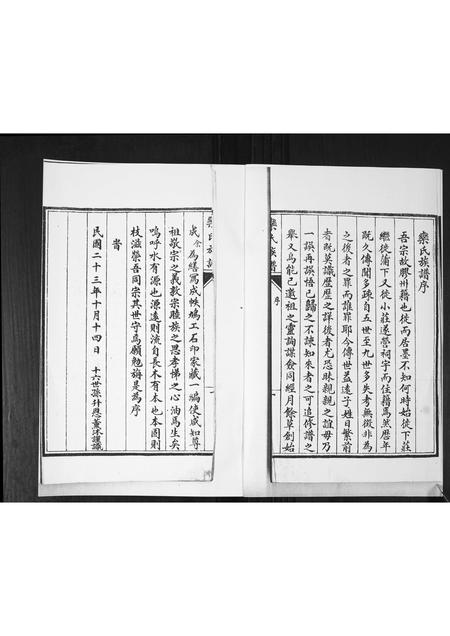 欒氏族譜序
吾宗故膠州籍也徙而居墨不知何時始徙下莊
繼徙蒲下又徙小莊遂營祠宇而住籍焉然歷年
既久傳聞多疎自五世至九世多失考無徵非為
之後者之罪而誰罪耶今傳世益遠子姓日繁前
者既莫識歷歷之詳後者尤恐昧親親之誼毋乃
一誤再誤悟已歸之不諫知來者之可追修譜之
舉又烏能已邀祖之靈詢謀僉同經月餘草創始
欒氏族譜
序
一
成余為繕寫成帙鳩工石印家藏一編使咸知尊
祖敬宗之義敦宗睦族之思孝悌之心油焉生矣
嗚呼水有源也源遠則流自長木有本也本固則
枝滋榮吾同宗其世守焉願勉旃是為序
峕
民國二十三年十月十四日
十六世孫升恩薰沐謹識
欒氏族譜